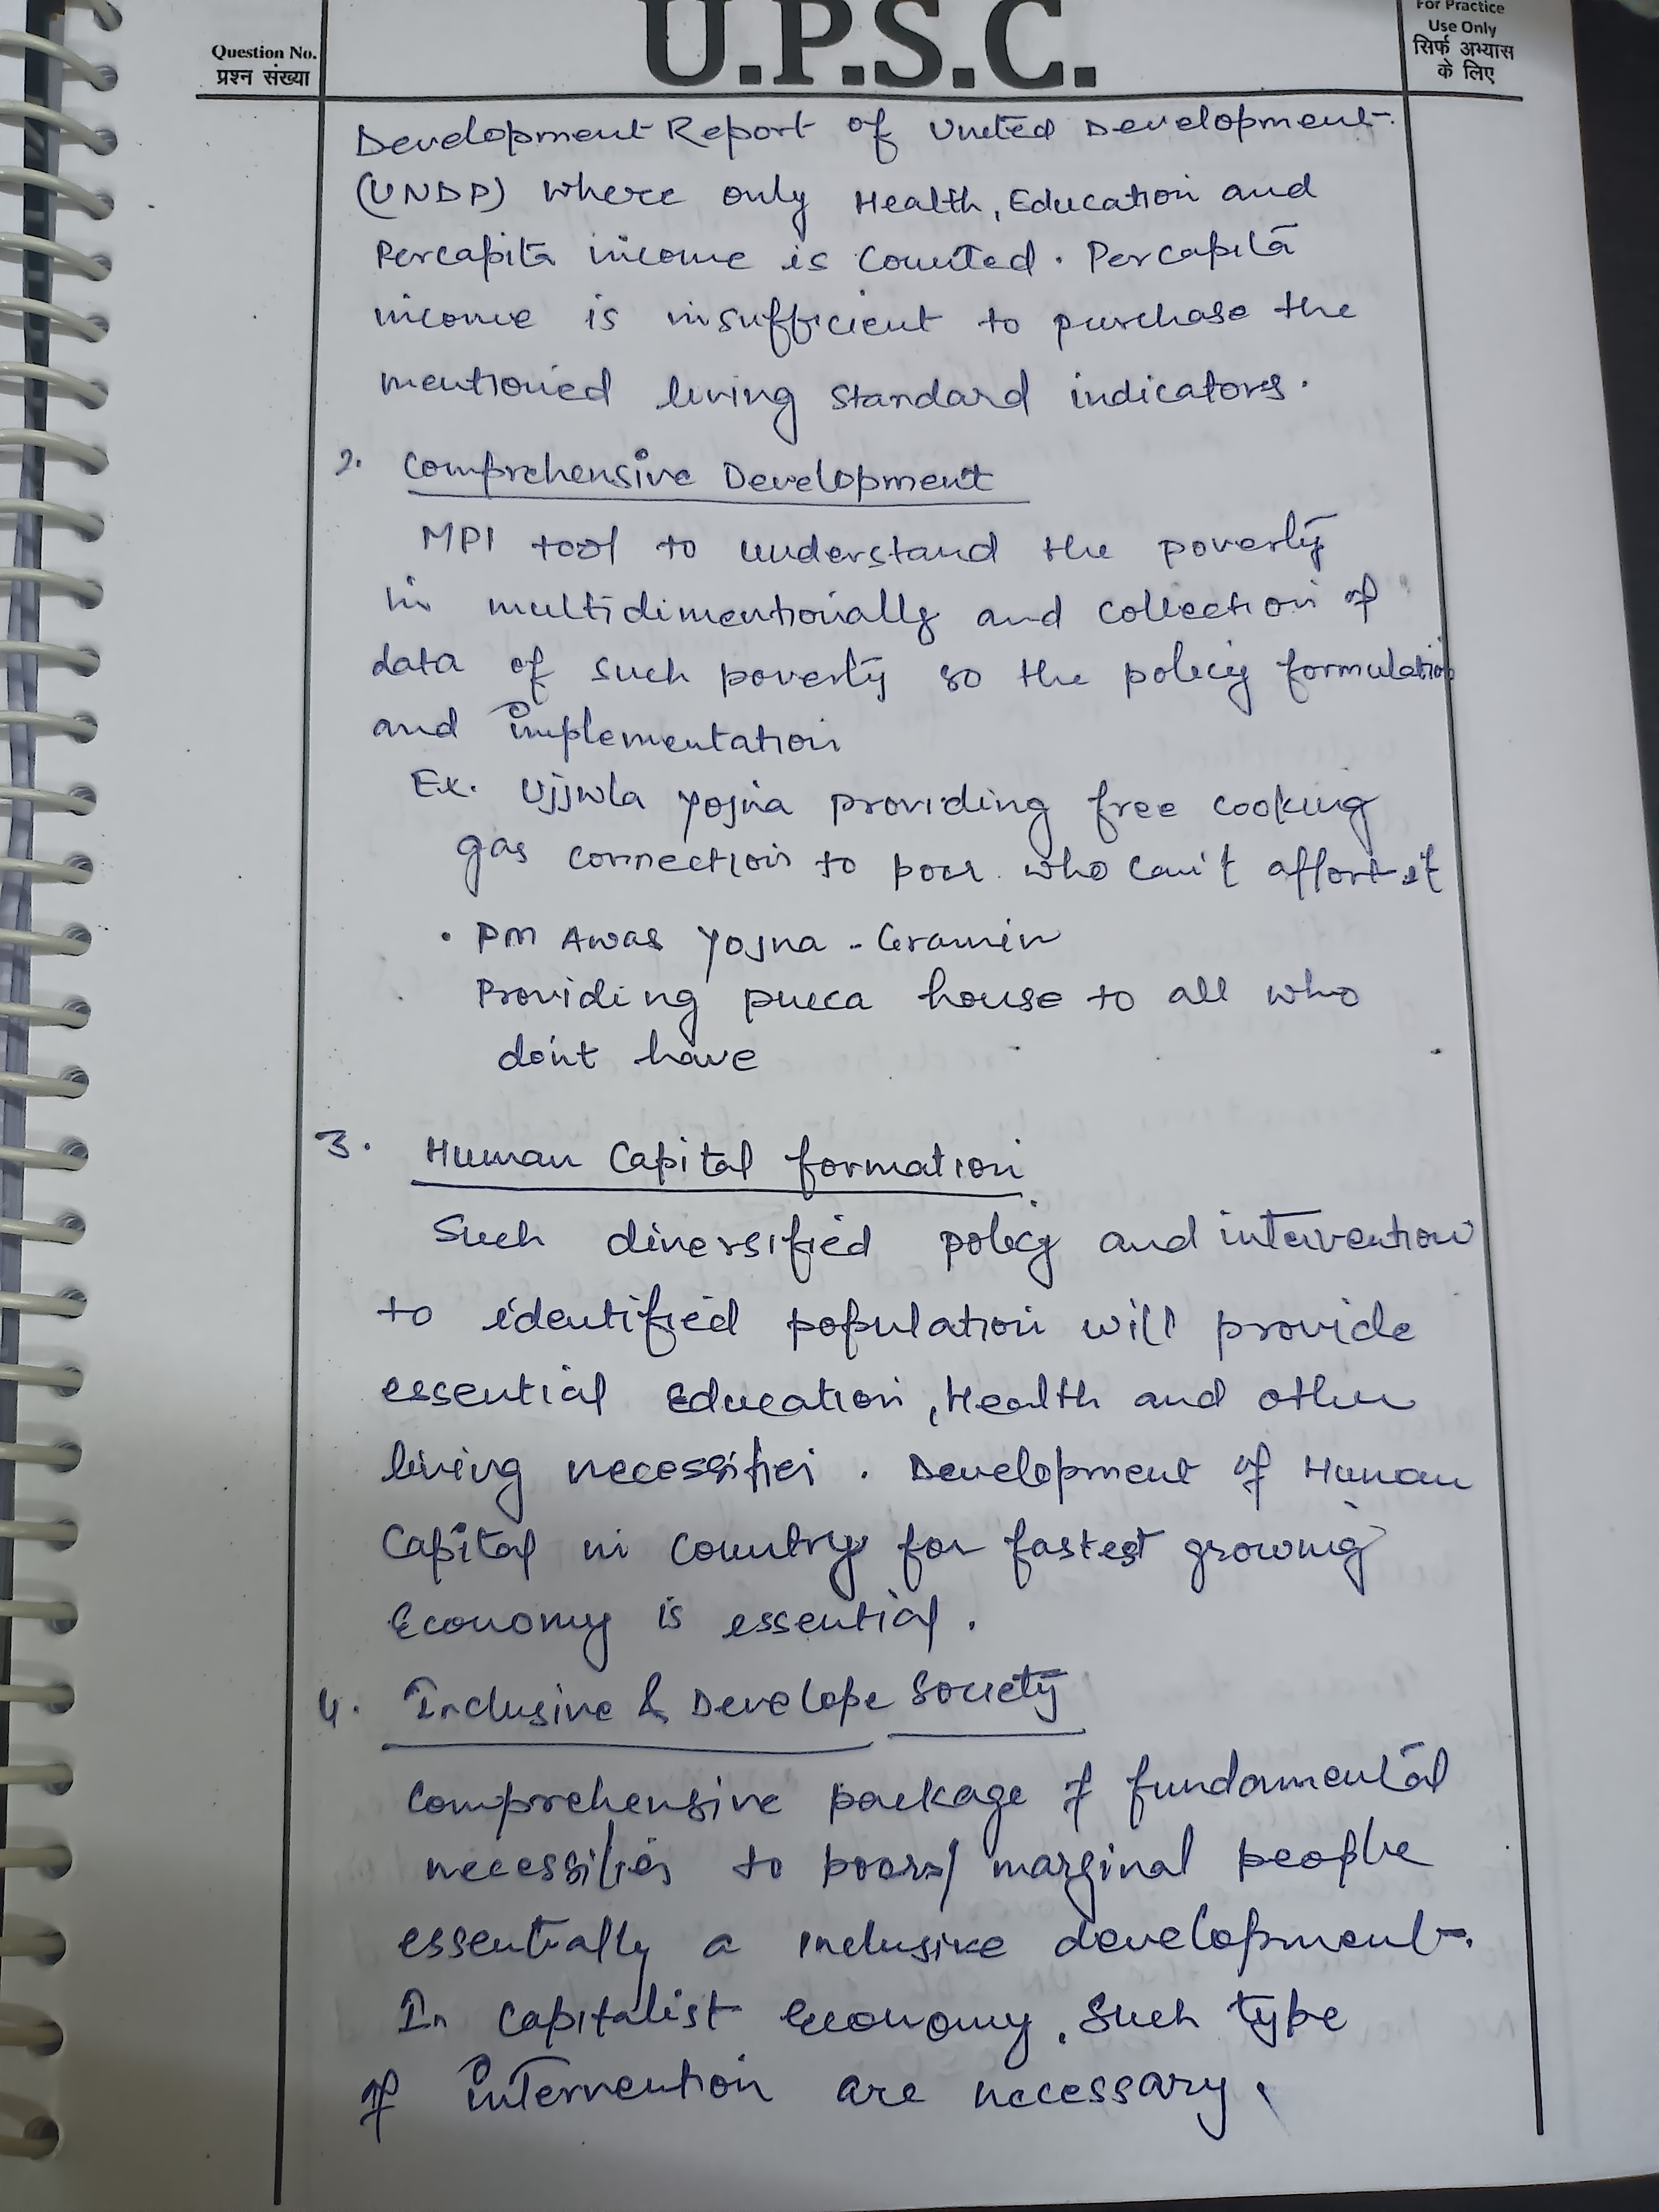 Question No.
प्रश्न संख्या
U.P.S.C.
For Practice
Use Only
सिर्फ अभ्यास
के लिए
Development Report of United Development
(UNDP) where only Health, Education and
Percapita income is counted. Percapita
income is insufficient to purchase the
mentioned living standard indicators.
2. Comprehensive Development
MPI tool to understand the poverty
in multidimentionally and collection of
data of such poverty so the policy formulation
and implementation
Ex. Ujjwla Yojna providing free cooking
gas connection to poor who can't affort it
• PM Awas Yojna - Gramin
Providing pucca house to all who
don't have
3. Human Capital formation
Such diversified policy and intervention
to identified population will provide
essential Education, Health and other
living necessities. Development of Human
Capital in country for fastest growing
Economy is essential.
4. Inclusive & Develope Society
Comprehensive package of fundamental
necessities to poors/ marginal people
essentially a inclusive development.
In Capitalist Economy, Such type
of intervention are necessary.